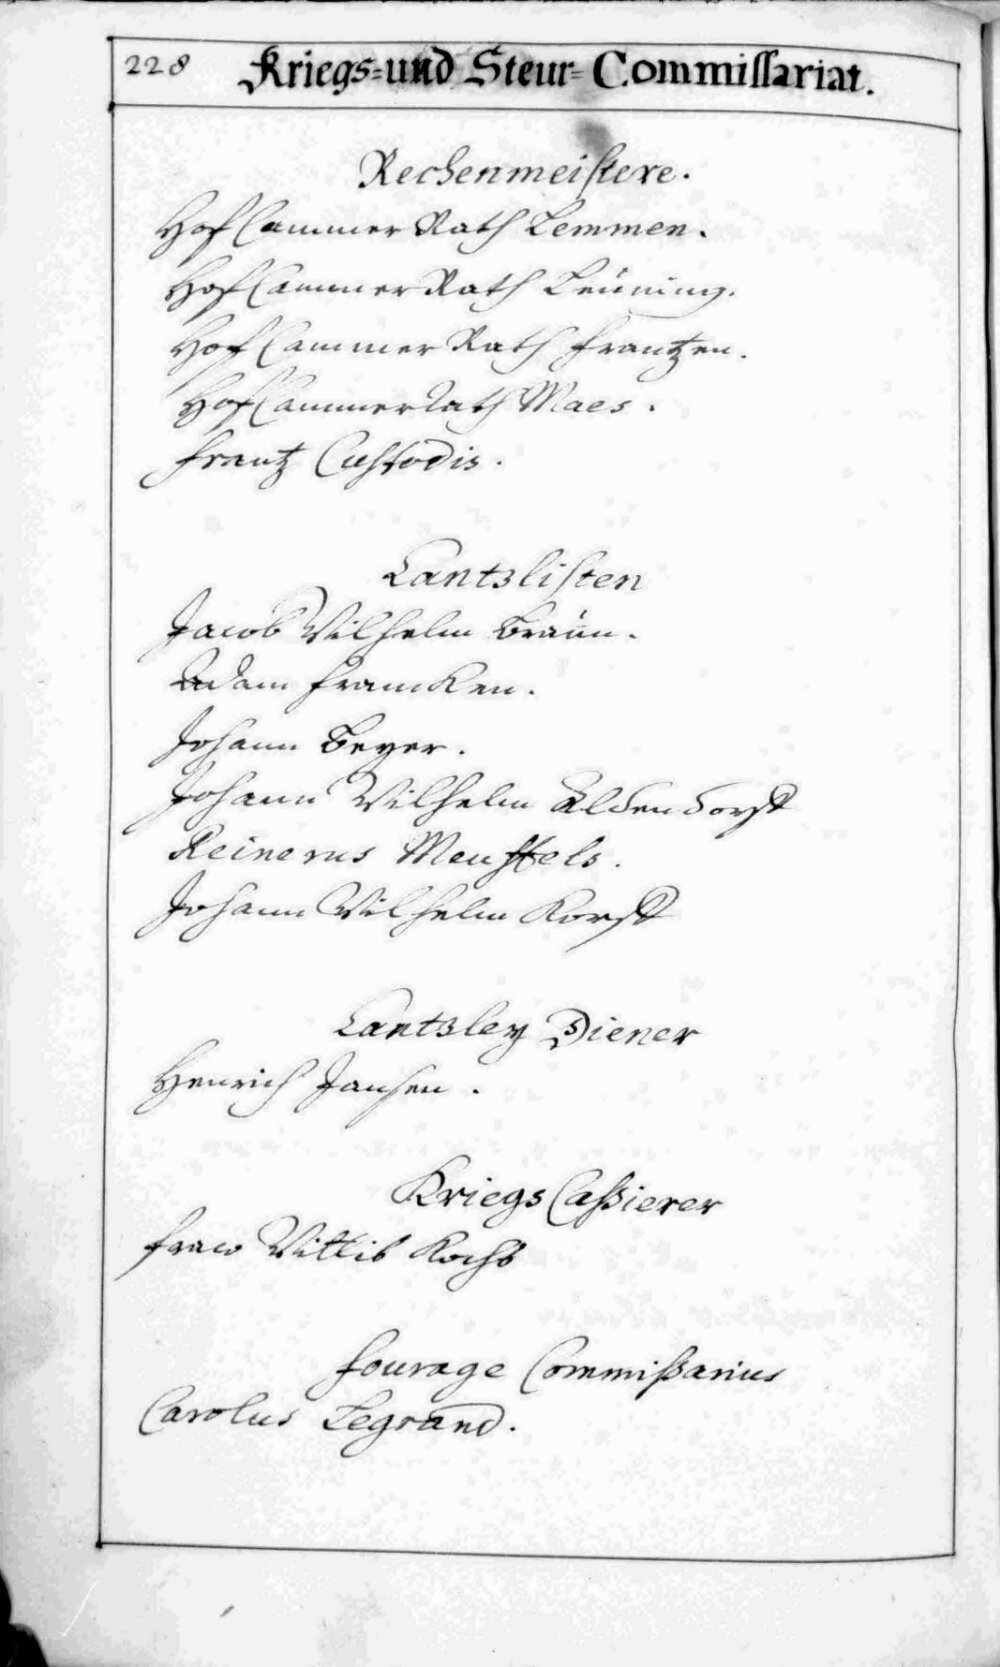 228 Kriegs- und Steur- Commissariat.
Rechenmeistere.
Hof Cammer Rath Lemmen.
Hof Cammer Rath Brüning.
Hof Cammer Rath Frantzen.
Hof Cammer Rath Maes.
Frantz Custodis.
Cantzlisten
Jacob Wilhelm Braun.
Adam Francken.
Johann Beyer.
Johann Wilhelm Aldendorst
Reinerus Meuffels.
Johann Wilhelm Korst
Cantzley Diener
Henrich Jansen.
Kriegs Caßierer
Fraw Wittib Kochs
Fourage Commißarius
Carolus Legrand.